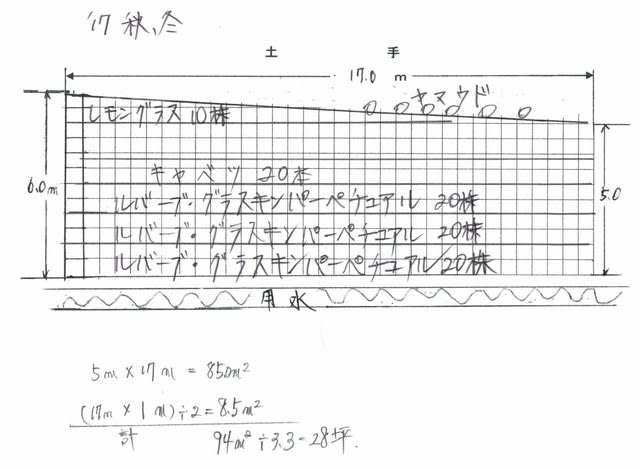 '17 秋、冬
土 手
17.0 m
ヤマウド
レモングラス 10株
6.0m
5.0
キャベツ 20本
ルバーブ・グラスキンパーペチュアル 20株
ルバーブ・グラスキンパーペチュアル 20株
ルバーブ・グラスキンパーペチュアル 20株
用水
5m × 17m = 85.0m²
(17m × 1m)÷2=8.5m²
計 94m²÷3.3=28坪.